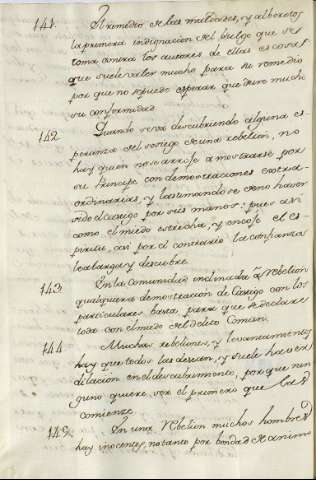 141 Al remedio de las maldades, y alborotos
la primera indignacion del vulgo que se
toma contra los autores de ellas es cosa
que suele valer mucho para su remedio
por que no se puede esperar que dure mucho
su conformidad
142 Quando se va descubriendo alguna es-
peranza del sosiego de una rebelion, no
hay quien no se arroje a mostrarse por
su Principe con demostraciones extra-
ordinarias, y lastimandose de no haver
sido el castigo por sus manos: pues asi
como el miedo estrecha, y encoje el es-
piritu, asi por el contrario la confianza
le alarga y descubre
143 En la comunidad inclinada a Rebelion
qualquiera demostracion de Castigo con los
particulares basta para que se declare
toda con el miedo del delito Comun.
144 Muchas rebeliones, y levantamientos
hay que todos las desean, y suele haver
dilacion en el descubrimiento, por que nin-
guno quiere ser el primero que las
comienze
145 En una Rebelion muchos hombres
hay inocentes, no tanto por bondad de animo